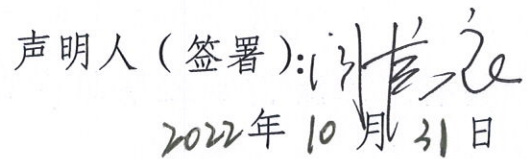 声明人（签署）:
2022年10月31日